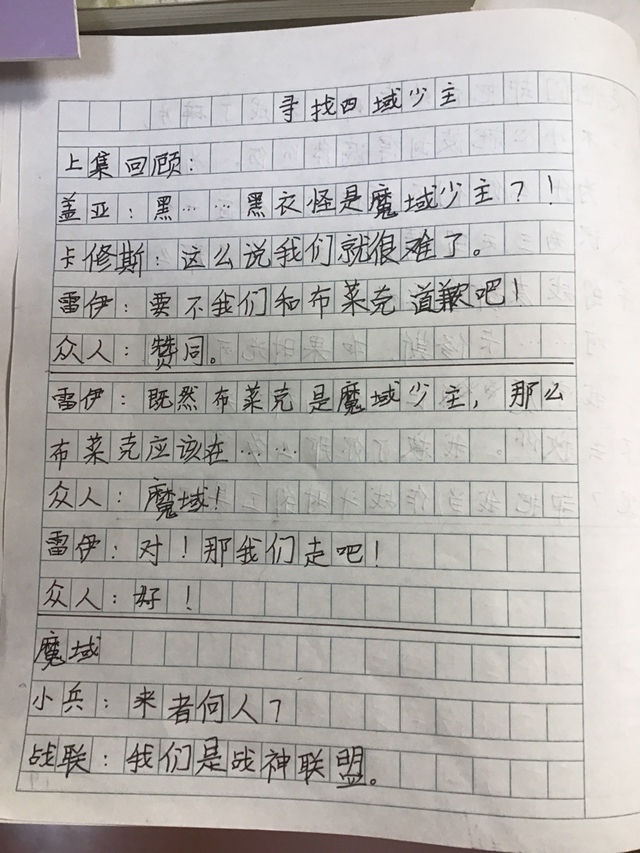 寻找四域少主
上集回顾：
盖亚：黑……黑衣怪是魔域少主？！
卡修斯：这么说我们就很难了。
雷伊：要不我们和布莱克道歉吧！
众人：赞同。
雷伊：既然布莱克是魔域少主，那么
布莱克应该在……
众人：魔域！
雷伊：对！那我们走吧！
众人：好！
魔域
小兵：来者何人？
战联：我们是战神联盟。